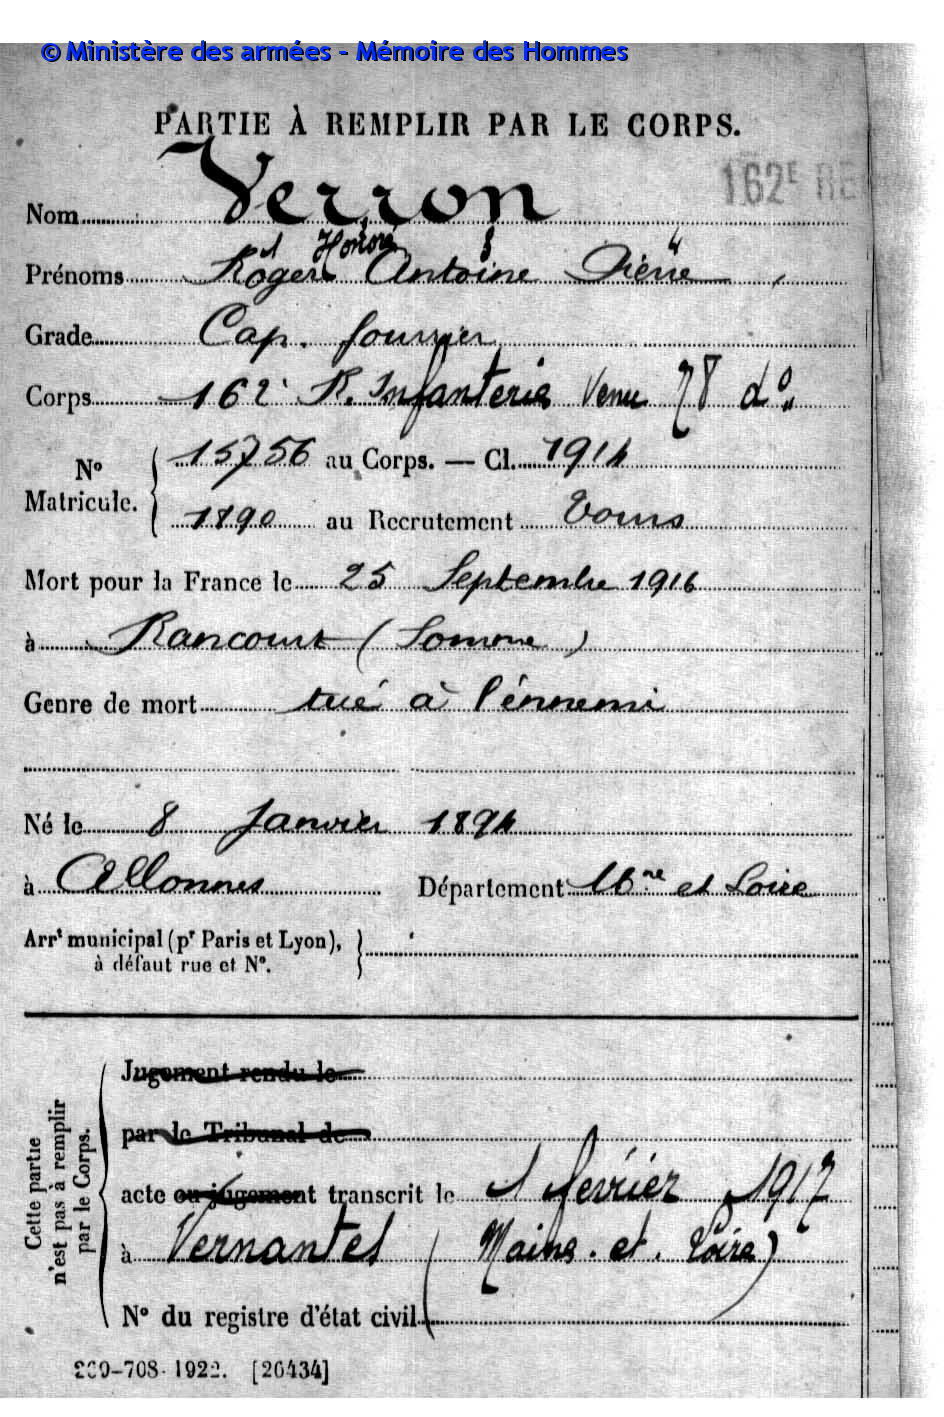 © Ministère des armées - Mémoire des Hommes
PARTIE À REMPLIR PAR LE CORPS.
162E RE
Nom Verron
Prénoms Roger Honoré Antoine Pierre
1 2 3 4
Grade Cap. fourrier
Corps 162e R. Infanterie Venu 78 do
No Matricule. 15756 au Corps. — Cl. 1914
1890 au Recrutement Tours
Mort pour la France le 25 Septembre 1916
à Rancourt (Somme)
Genre de mort tué à l'énnemi
Né le 8 Janvier 1894
à Allonnes Département Mne et Loire
Arrt municipal (pr Paris et Lyon),
à défaut rue et No.
Cette partie
n'est pas à remplir
par le Corps.
Jugement rendu le
par le Tribunal de
acte ou jugement transcrit le 1 février 1917
à Vernantes (Maine. et. Loire)
No du registre d'état civil
269-708-1922. [26434]